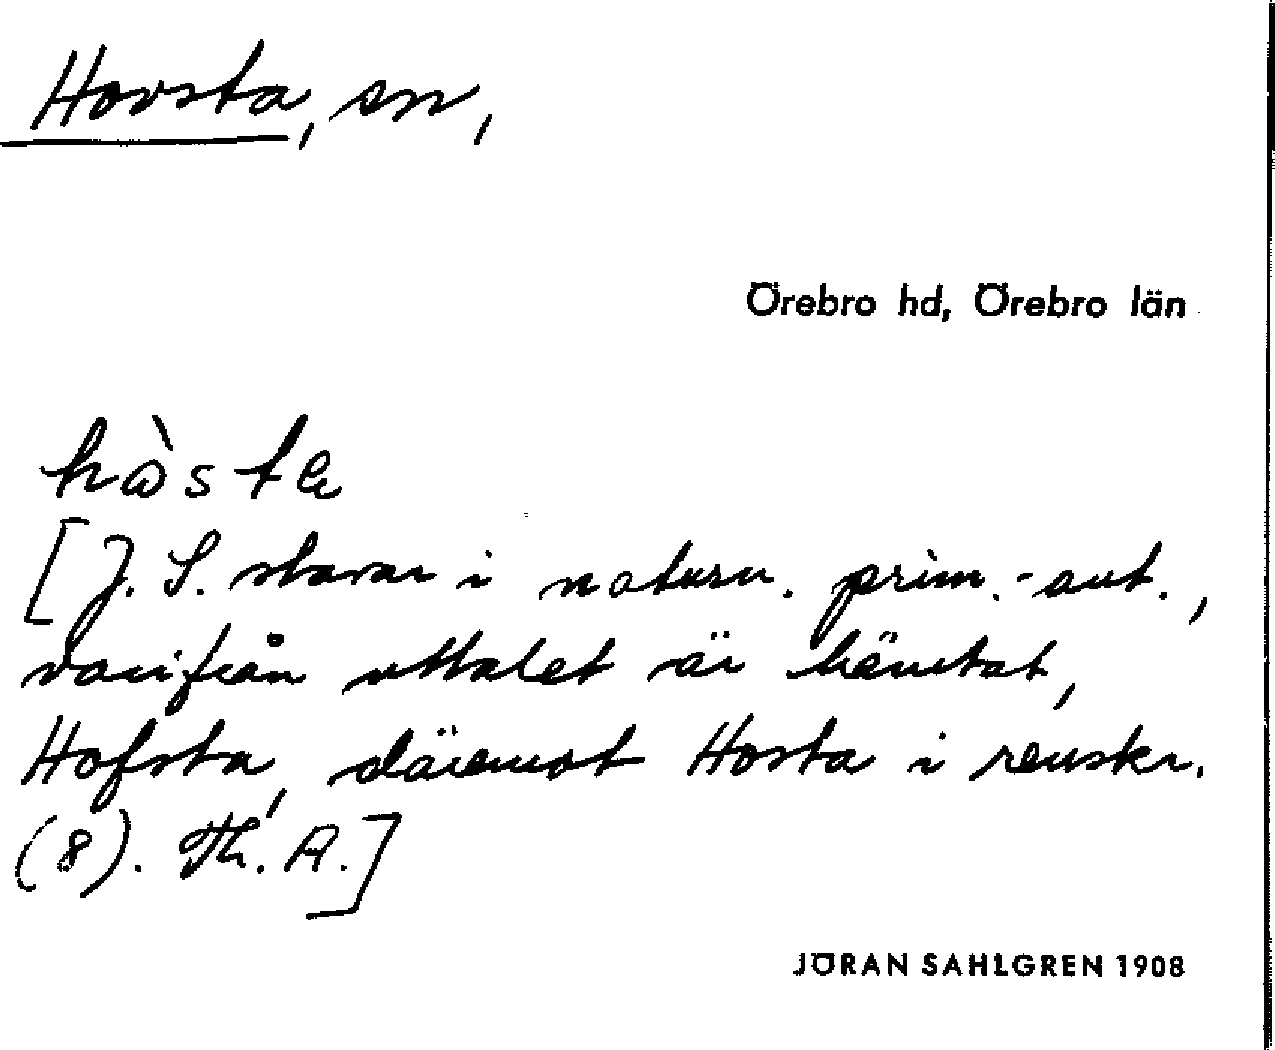 Hovsta, sn,
Örebro hd, Örebro län
hòsta
[J. S. stavar i naturn. prim.-ant.,
varifrån uttalet är hämtat,
Hofsta, däremot Hosta i renskr.
(8). Th. A.]
JÖRAN SAHLGREN 1908